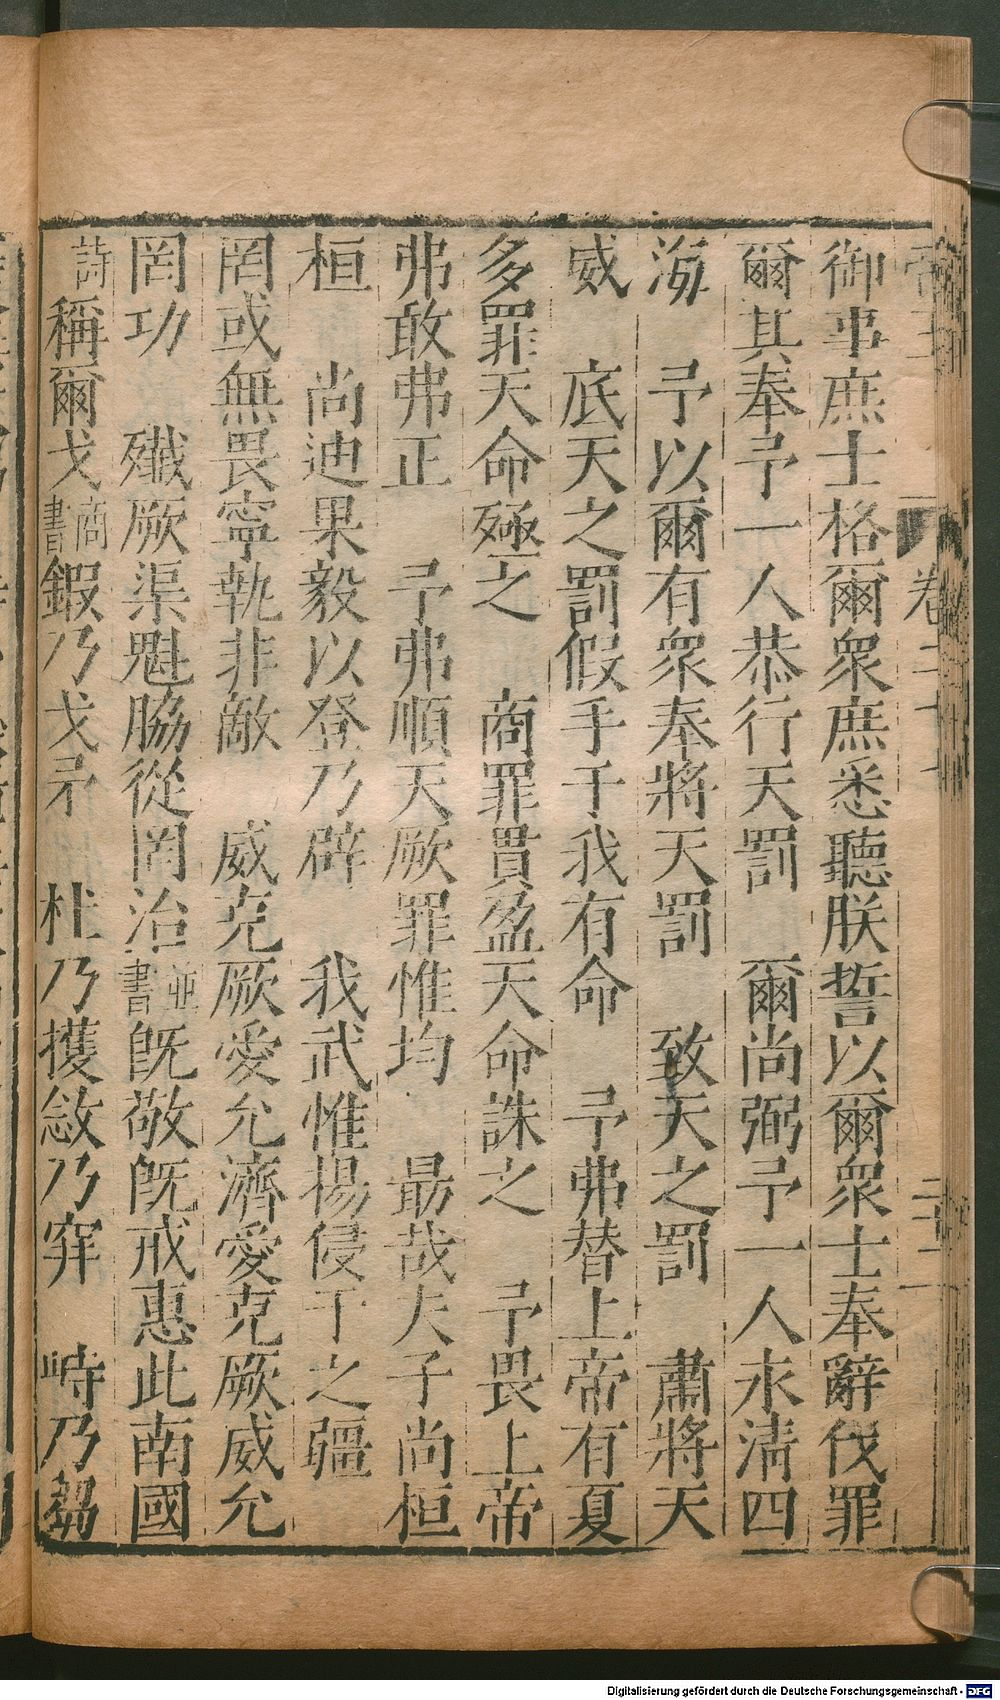 御事庶士格爾眾庶悉聽朕誓以爾眾士奉辭伐罪
爾其奉予一人恭行天罰　爾尚弼予一人永清四
海　予以爾有眾奉將天罰　致天之罰　肅將天
威　底天之罰假手于我有命　予弗替上帝有夏
多罪天命殛之　商罪貫盈天命誅之　予畏上帝
弗敢弗正　予弗順天厥罪惟均　朂哉夫子尚桓
桓　尚迪果毅以登乃辟　我武惟揚侵于之疆
罔或無畏寧執非敵　威克厥愛允濟愛克厥威允
罔功　殲厥渠魁脇從罔治並書旣敬旣戒惠此南國
詩稱爾戈商書鍜乃戈矛　杜乃擭敜乃穽　峙乃芻
卷二十
二十一
Digitalisierung gefördert durch die Deutsche Forschungsgemeinschaft - DFG